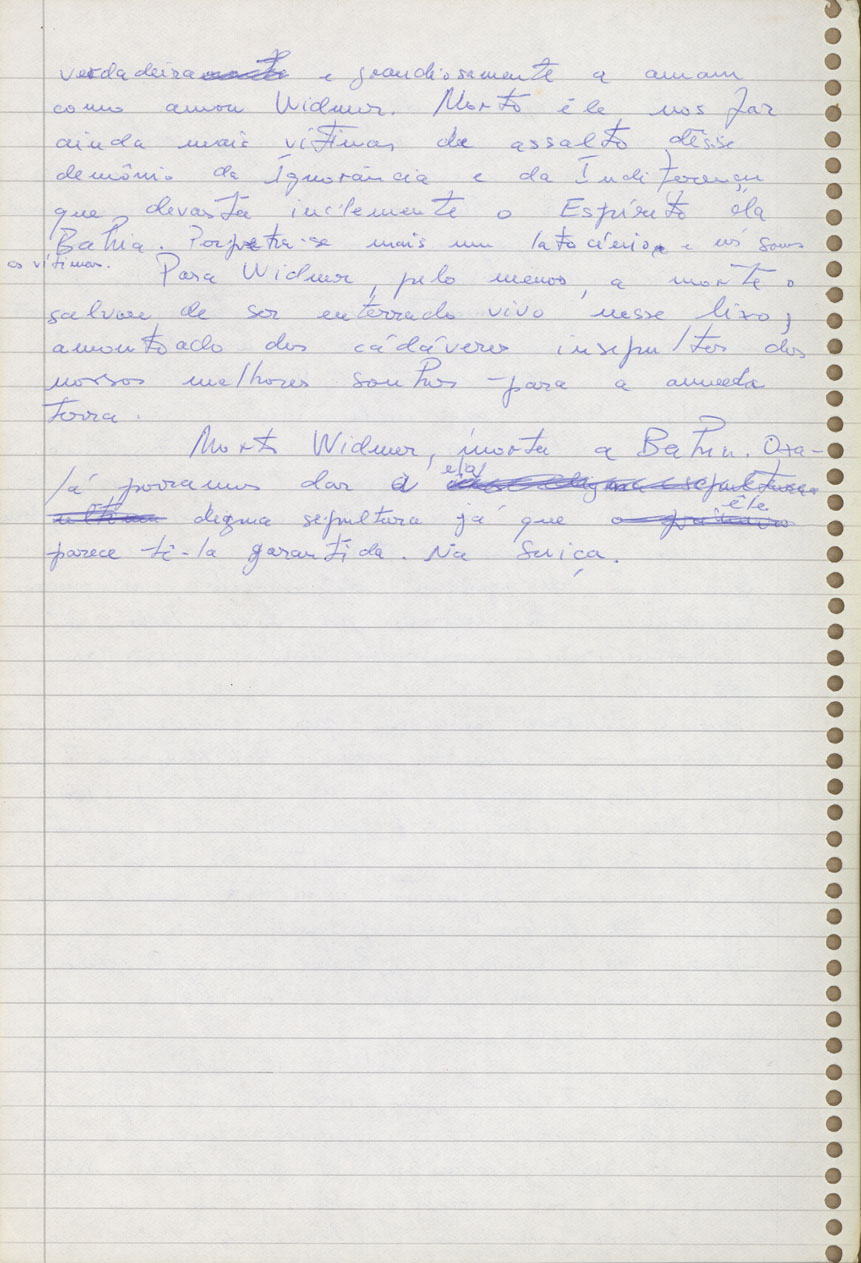 verdadeira e grandiosamente a amam
como amou Widmer. Morto êle nos faz
ainda mais vítimas de assalto dêsse
demônio da Ignorância e da Indiferença
que devasta inclemente o Espírito da
Bahia. Perpetra-se mais um latocínio e nós somos
as vítimas.
Para Widmer, pelo menos, a morte o
salvou de ser enterrado vivo nesse lixo,
amontoado dos cádáveres insepultos dos
nossos melhores sonhos - para a
terra.
Morto Widmer, morta a Bahia. Oxa-
lá possamos dar à ela
digna sepultura já que êle
parece tê-la garantida. Na Suiça.